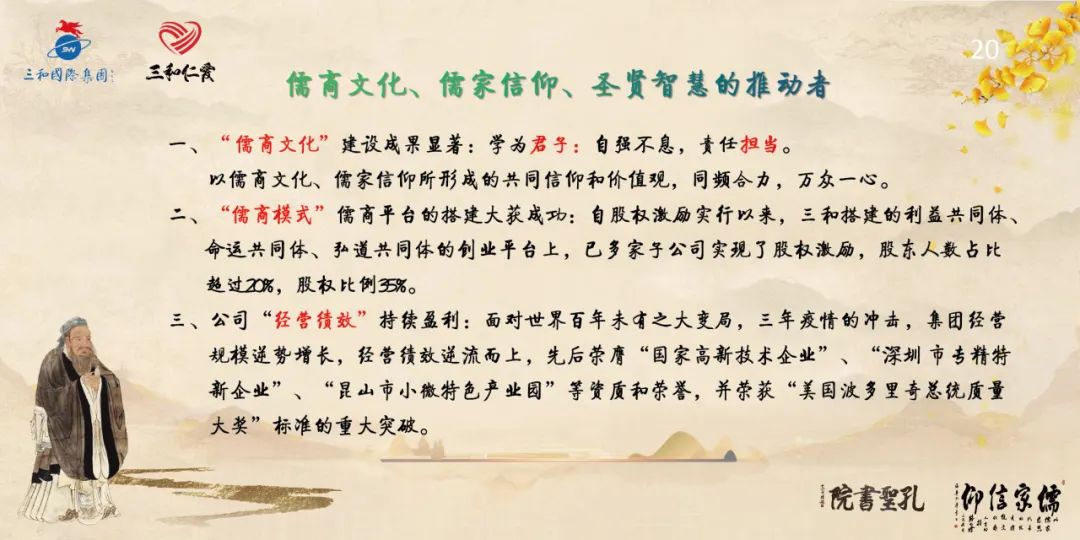 三和國際集團
三和仁愛
20
儒商文化、儒家信仰、圣贤智慧的推动者
一、“儒商文化”建设成果显著：学为君子：自强不息，责任担当。
以儒商文化、儒家信仰所形成的共同信仰和价值观，同频合力，万众一心。
二、“儒商模式”儒商平台的搭建大获成功：自股权激励实行以来，三和搭建的利益共同体、
命运共同体、弘道共同体的创业平台上，已多家子公司实现了股权激励，股东人数占比
超过20%，股权比例35%。
三、公司“经营绩效”持续盈利：面对世界百年未有之大变局，三年疫情的冲击，集团经营
规模逆势增长，经营绩效逆流而上，先后荣膺“国家高新技术企业”、“深圳市专精特
新企业”、“昆山市小微特色产业园”等资质和荣誉，并荣获“美国波多里奇总统质量
大奖”标准的重大突破。
院書聖孔
仰信家儒